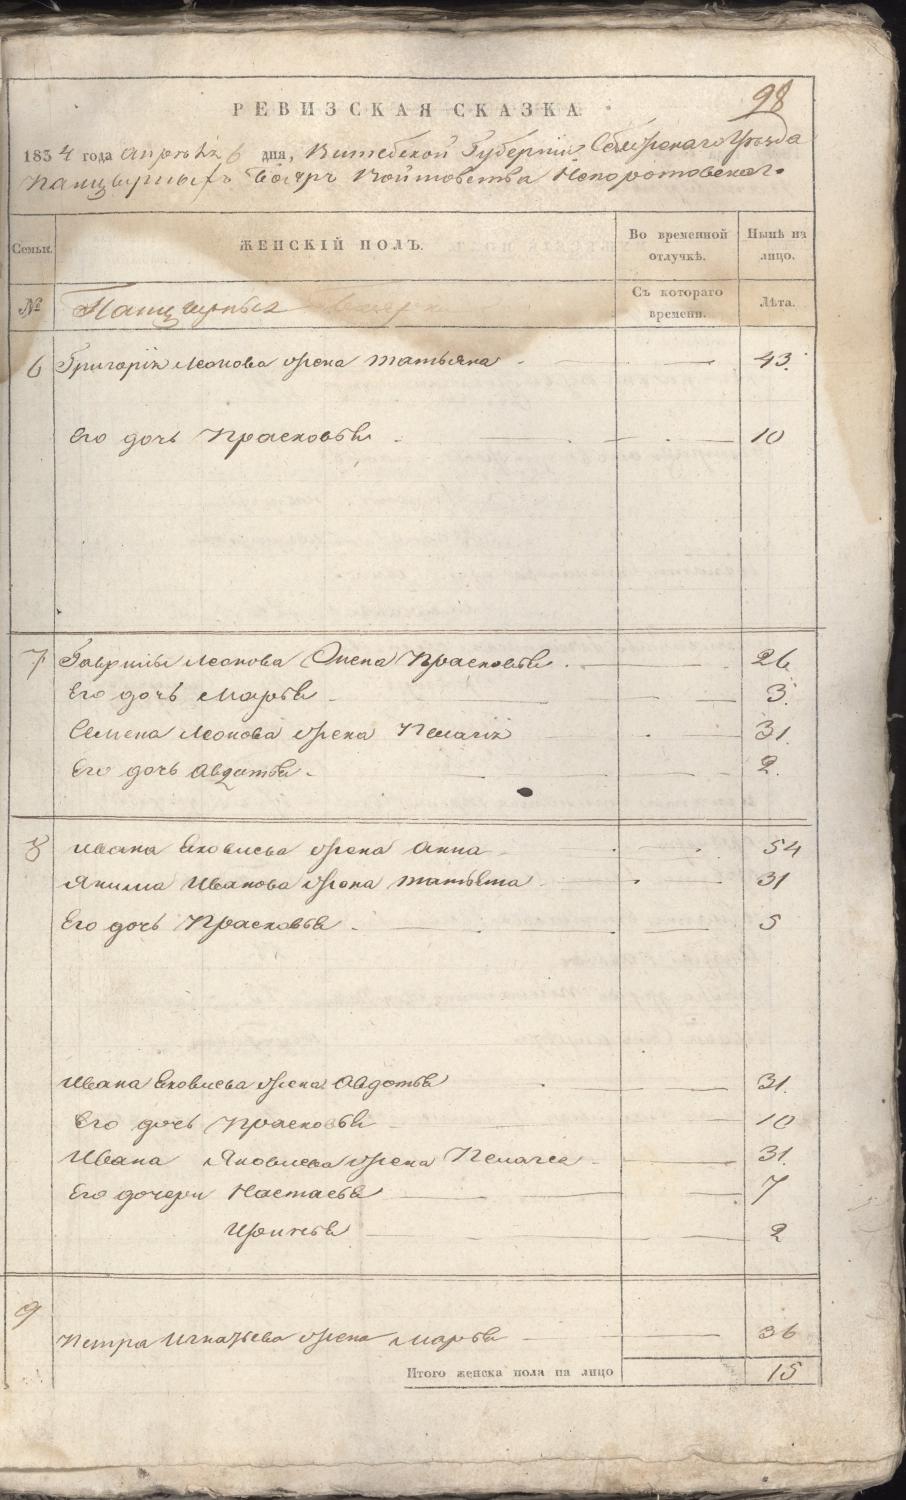 98
РЕВИЗСКАЯ СКАЗКА
1834 года апреля 6 дня, Витебской Губернии Себежскаго Уезда
Панцырныхъ Бояръ Войтовства Непоротовскаго
Семьи. ЖЕНСКІЙ ПОЛЪ. Во временной отлучкѣ. Нынѣ на лицо.
№ Панцырныхъ Бояръ Съ котораго времени. Лѣта.
6 Григорія Леонова жена Татьяна 43.
Его дочь Прасковья 10
7 Гаврилы Леонова жена Прасковья 26
Его дочь Марья 3.
Семена Леонова жена Пелагія 31.
Его дочь Авдотья 2.
8 Ивана Яковлева жена Анна 54
Якима Иванова жена 31
Его дочь Прасковья 5
Ивана Яковлева жена Авдотья 31.
Его дочь Прасковья 10
Ивана Яковлева жена Пелагея 31.
Его дочери Настасья 7
2
9
Петра Игнатьева жена Марья 36
Итого женска пола на лицо 15